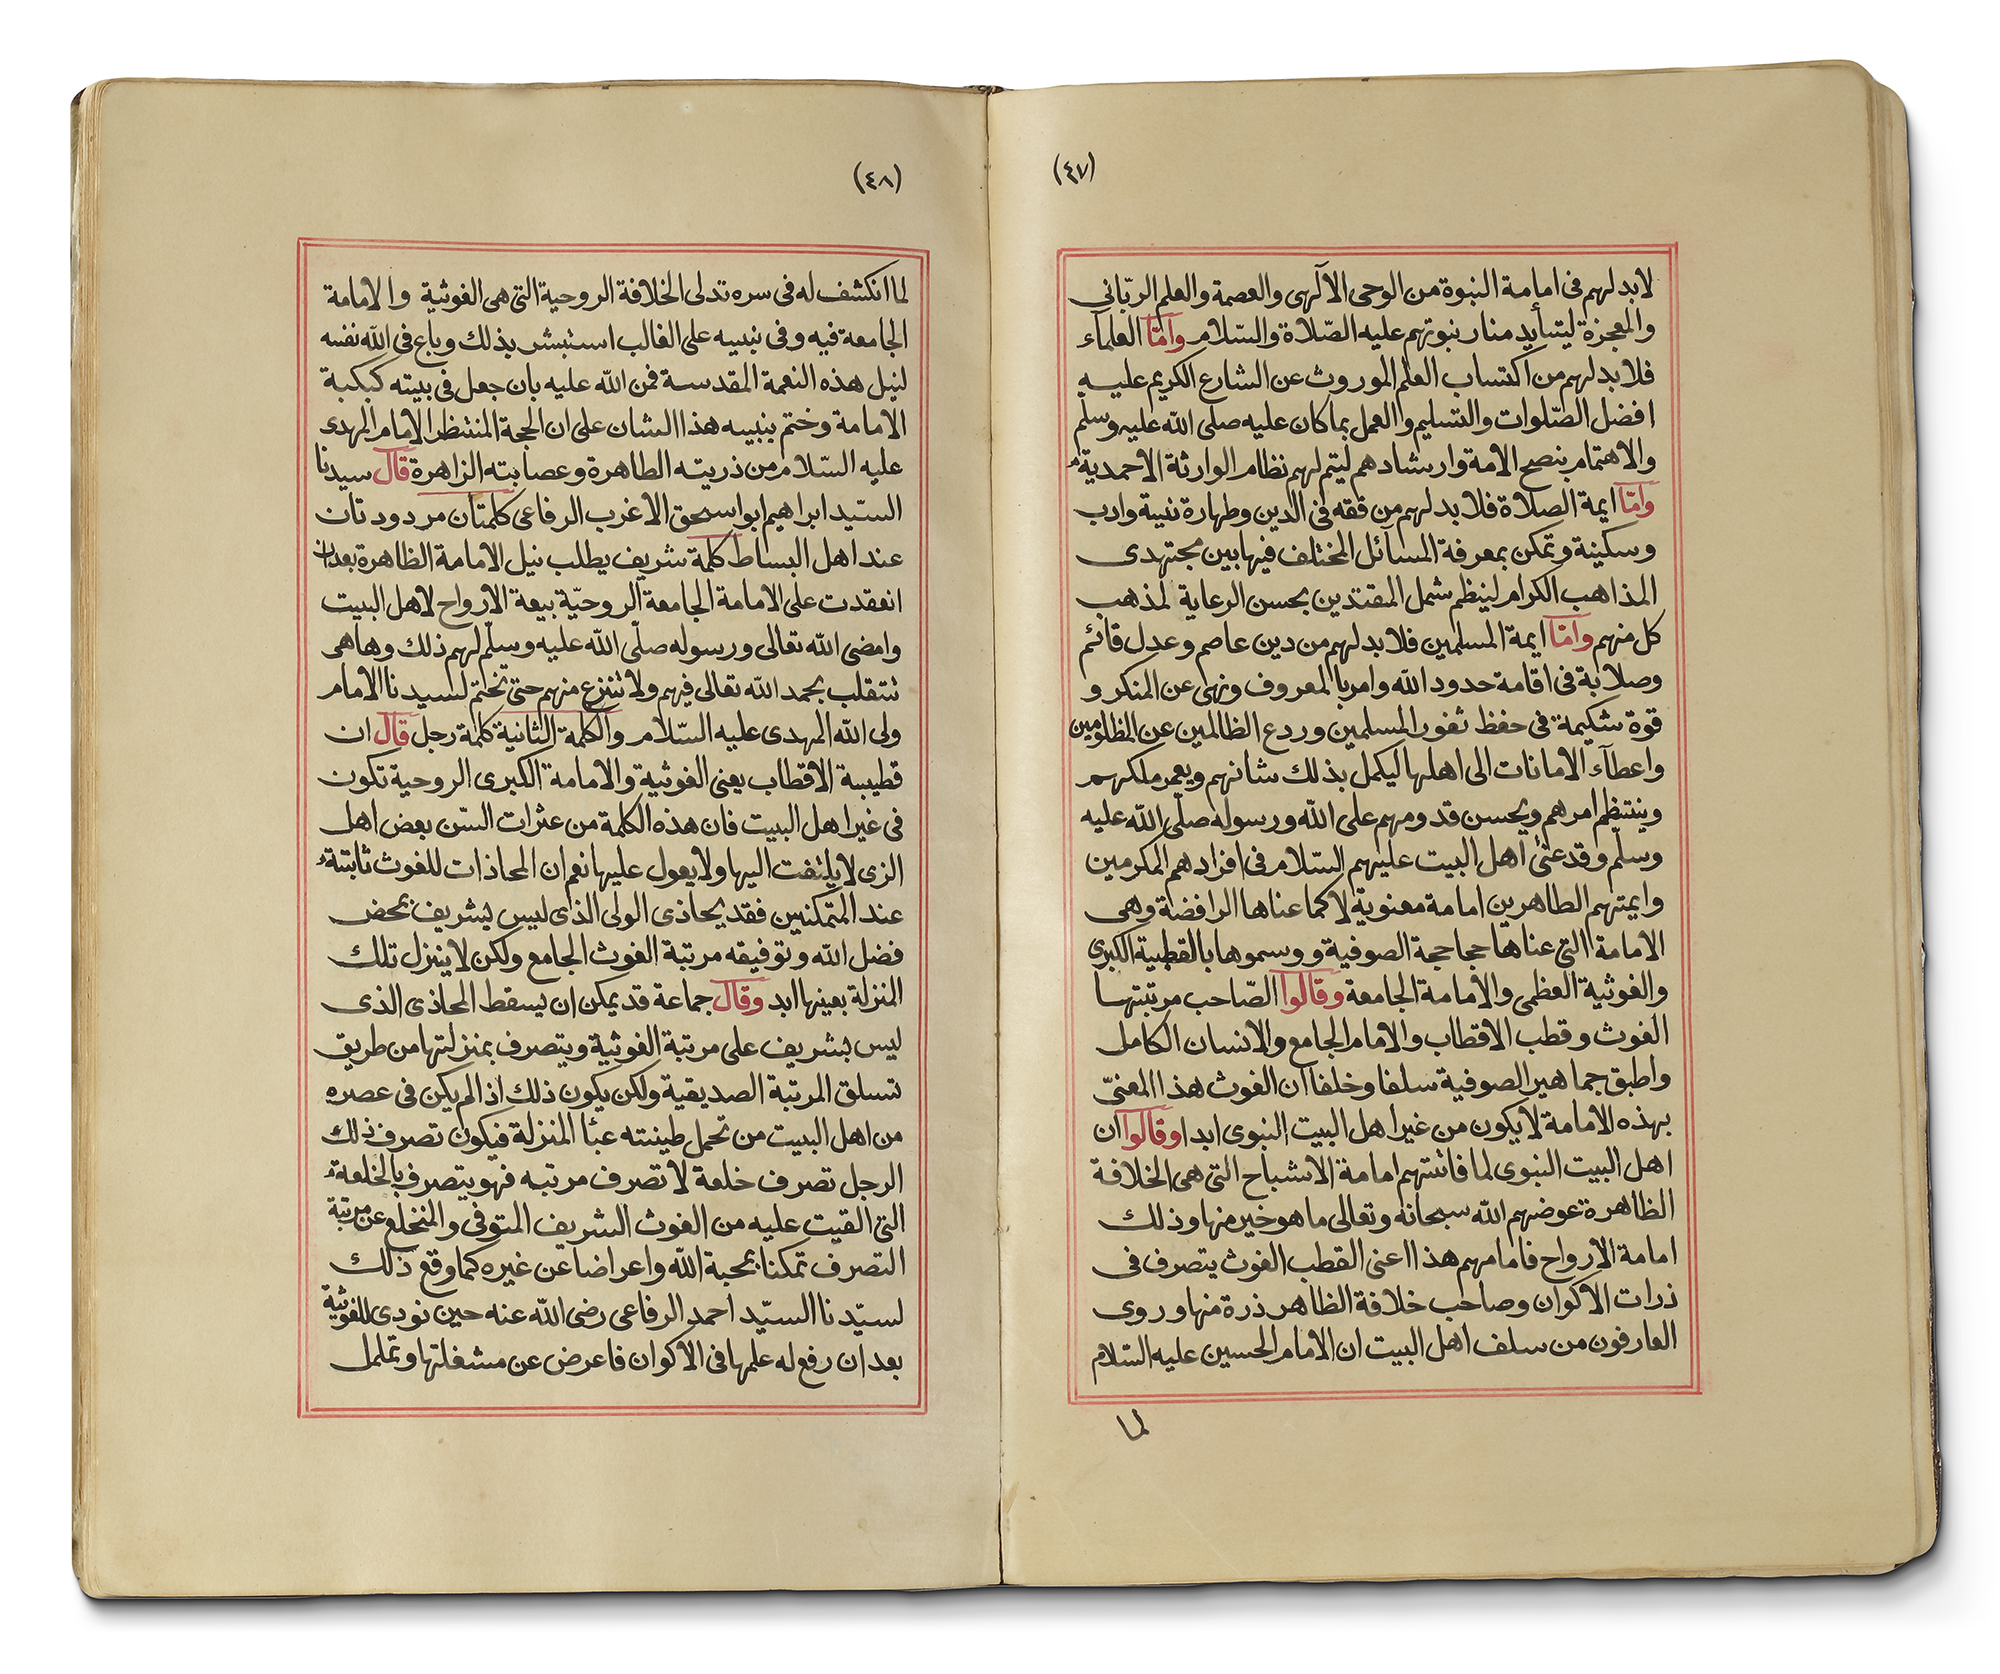 (٤٧)
لابد لهم فى امامة النبوة من الوحى الآلهى والعصمة والعلم الربّانى
والمعجزة ليتأيد منار نبوتهم عليه الصّلاة والسّلام وامّا العلمآء
فلا بد لهم من اكتساب العلم الموروث عن الشارع الكريم عليه
افضل الصّلوات والتسليم والعمل بما كان عليه صلى الله عليه وسلم
والاهتمام بنصح الامة وارشادهم ليتم لهم نظام الوارثة الاحمدية
وامّا ايمة الصلاة فلا بد لهم من فقه فى الدين وطهارة نية وادب
وسكينة وتمكن بمعرفة المسائل المختلف فيها بين مجتهدى
المذاهب الكرام لينظم شمل المقتدين بحسن الرعاية لمذهب
كل منهم وامّا ايمة المسلمين فلا بد لهم من دين عاصم وعدل قائم
وصلابة فى اقامة حدود الله وامر بالمعروف ونهى عن المنكر و
قوة شكيمة فى حفظ ثغور المسلمين وردع الظالمين عن المظلومين
واعطآء الامانات الى اهلها ليكمل بذلك شانهم ويعمر ملكهم
وينتظم امرهم ويحسن قدومهم على الله ورسوله صلّى الله عليه
وسلّم وقد عنى اهل البيت عليهم السّلام فى افرادهم المكرمين
وايمتهم الطاهرين امامة معنوية لا كما عناها الرافضة وهى
الامامة التى عناها حجاحجة الصوفية ووسموها بالقطبية الكبرى
والغوثية العظمى والامامة الجامعة وقالوا الصّاحب مرتبتها
الغوث وقطب الاقطاب والامام الجامع والانسان الكامل
واطبق جماهير الصوفية سلفا وخلفا ان الغوث هذا المعنىّ
بهذه الامامة لا يكون من غير اهل البيت النبوى ابدا وقالوا ان
اهل البيت النبوى لما فاتتهم امامة الاشباح التى هى الخلافة
الظاهرة عوضهم الله سبحانه وتعالى ما هو خير منها وذلك
امامة الارواح فامامهم هذا اعنى القطب الغوث يتصرف فى
ذرات الاكوان وصاحب خلافة الظاهر ذرة منها وروى
العارفون من سلف اهل البيت ان الامام الحسين عليه السّلام
لما
(٤٨)
لما انكشف له فى سره تدلى الخلافة الروحية التى هى الغوثية والامامة
الجامعة فيه وفى بنيه على الغالب استبشر بذلك وباع فى الله نفسه
لنيل هذه النعمة المقدسة فمن الله عليه بان جعل فى بيته كبكبة
الامامة وختم ببنيه هذا الشان على ان الحجة المنتظر الامام المهدى
عليه السّلام من ذريته الطاهرة وعصابته الزاهرة قال سيدنا
السّيد ابراهيم ابو اسحق الاعزب الرفاعى كلمتان مردودتان
عند اهل البساط كلمة شريف يطلب نيل الامامة الظاهرة بعد ان
انعقدت على الامامة الجامعة الروحيّة بيعة الارواح لاهل البيت
وامضى الله تعالى ورسوله صلّى الله عليه وسلّم لهم ذلك وها هى
تتقلب بحمد الله تعالى فيهم ولا تنزع منهم حتى تختم لسيدنا الامام
ولى الله المهدى عليه السّلام والكلمة الثانية كلمة رجل قال ان
قطبية الاقطاب يعنى الغوثية والامامة الكبرى الروحية تكون
فى غير اهل البيت فان هذه الكلمة من عثرات السّن بعض اهل
الزى لا يلتفت اليها ولا يعول عليها نعم ان المحاذات للغوث ثابتة
عند المتمكنين فقد يحاذى الولى الذى ليس بشريف بمحض
فضل الله وتوفيقه مرتبة الغوث الجامع ولكن لا ينزل تلك
المنزلة بعينها ابد وقال جماعة قد يمكن ان يسقط المحاذى الذى
ليس بشريف على مرتبة الغوثية ويتصرف بمنزلتها من طريق
تسلق المرتبة الصديقية ولكن يكون ذلك اذا لم يكن فى عصره
من اهل البيت من تحمل طينته عبأ المنزلة فيكون تصرف ذلك
الرجل تصرف خلعة لا تصرف مرتبه فهو يتصرف بالخلعة
التى القيت عليه من الغوث الشريف المتوفى والمنخلع عن مرتبة
التصرف تمكنا بمحبة الله واعراضا عن غيره كما وقع ذلك
لسيّدنا السيّد احمد الرفاعى رضى الله عنه حين نودى للغوثية
بعد ان رفع له علمها فى الاكوان فاعرض عن مشغلتها وتململ